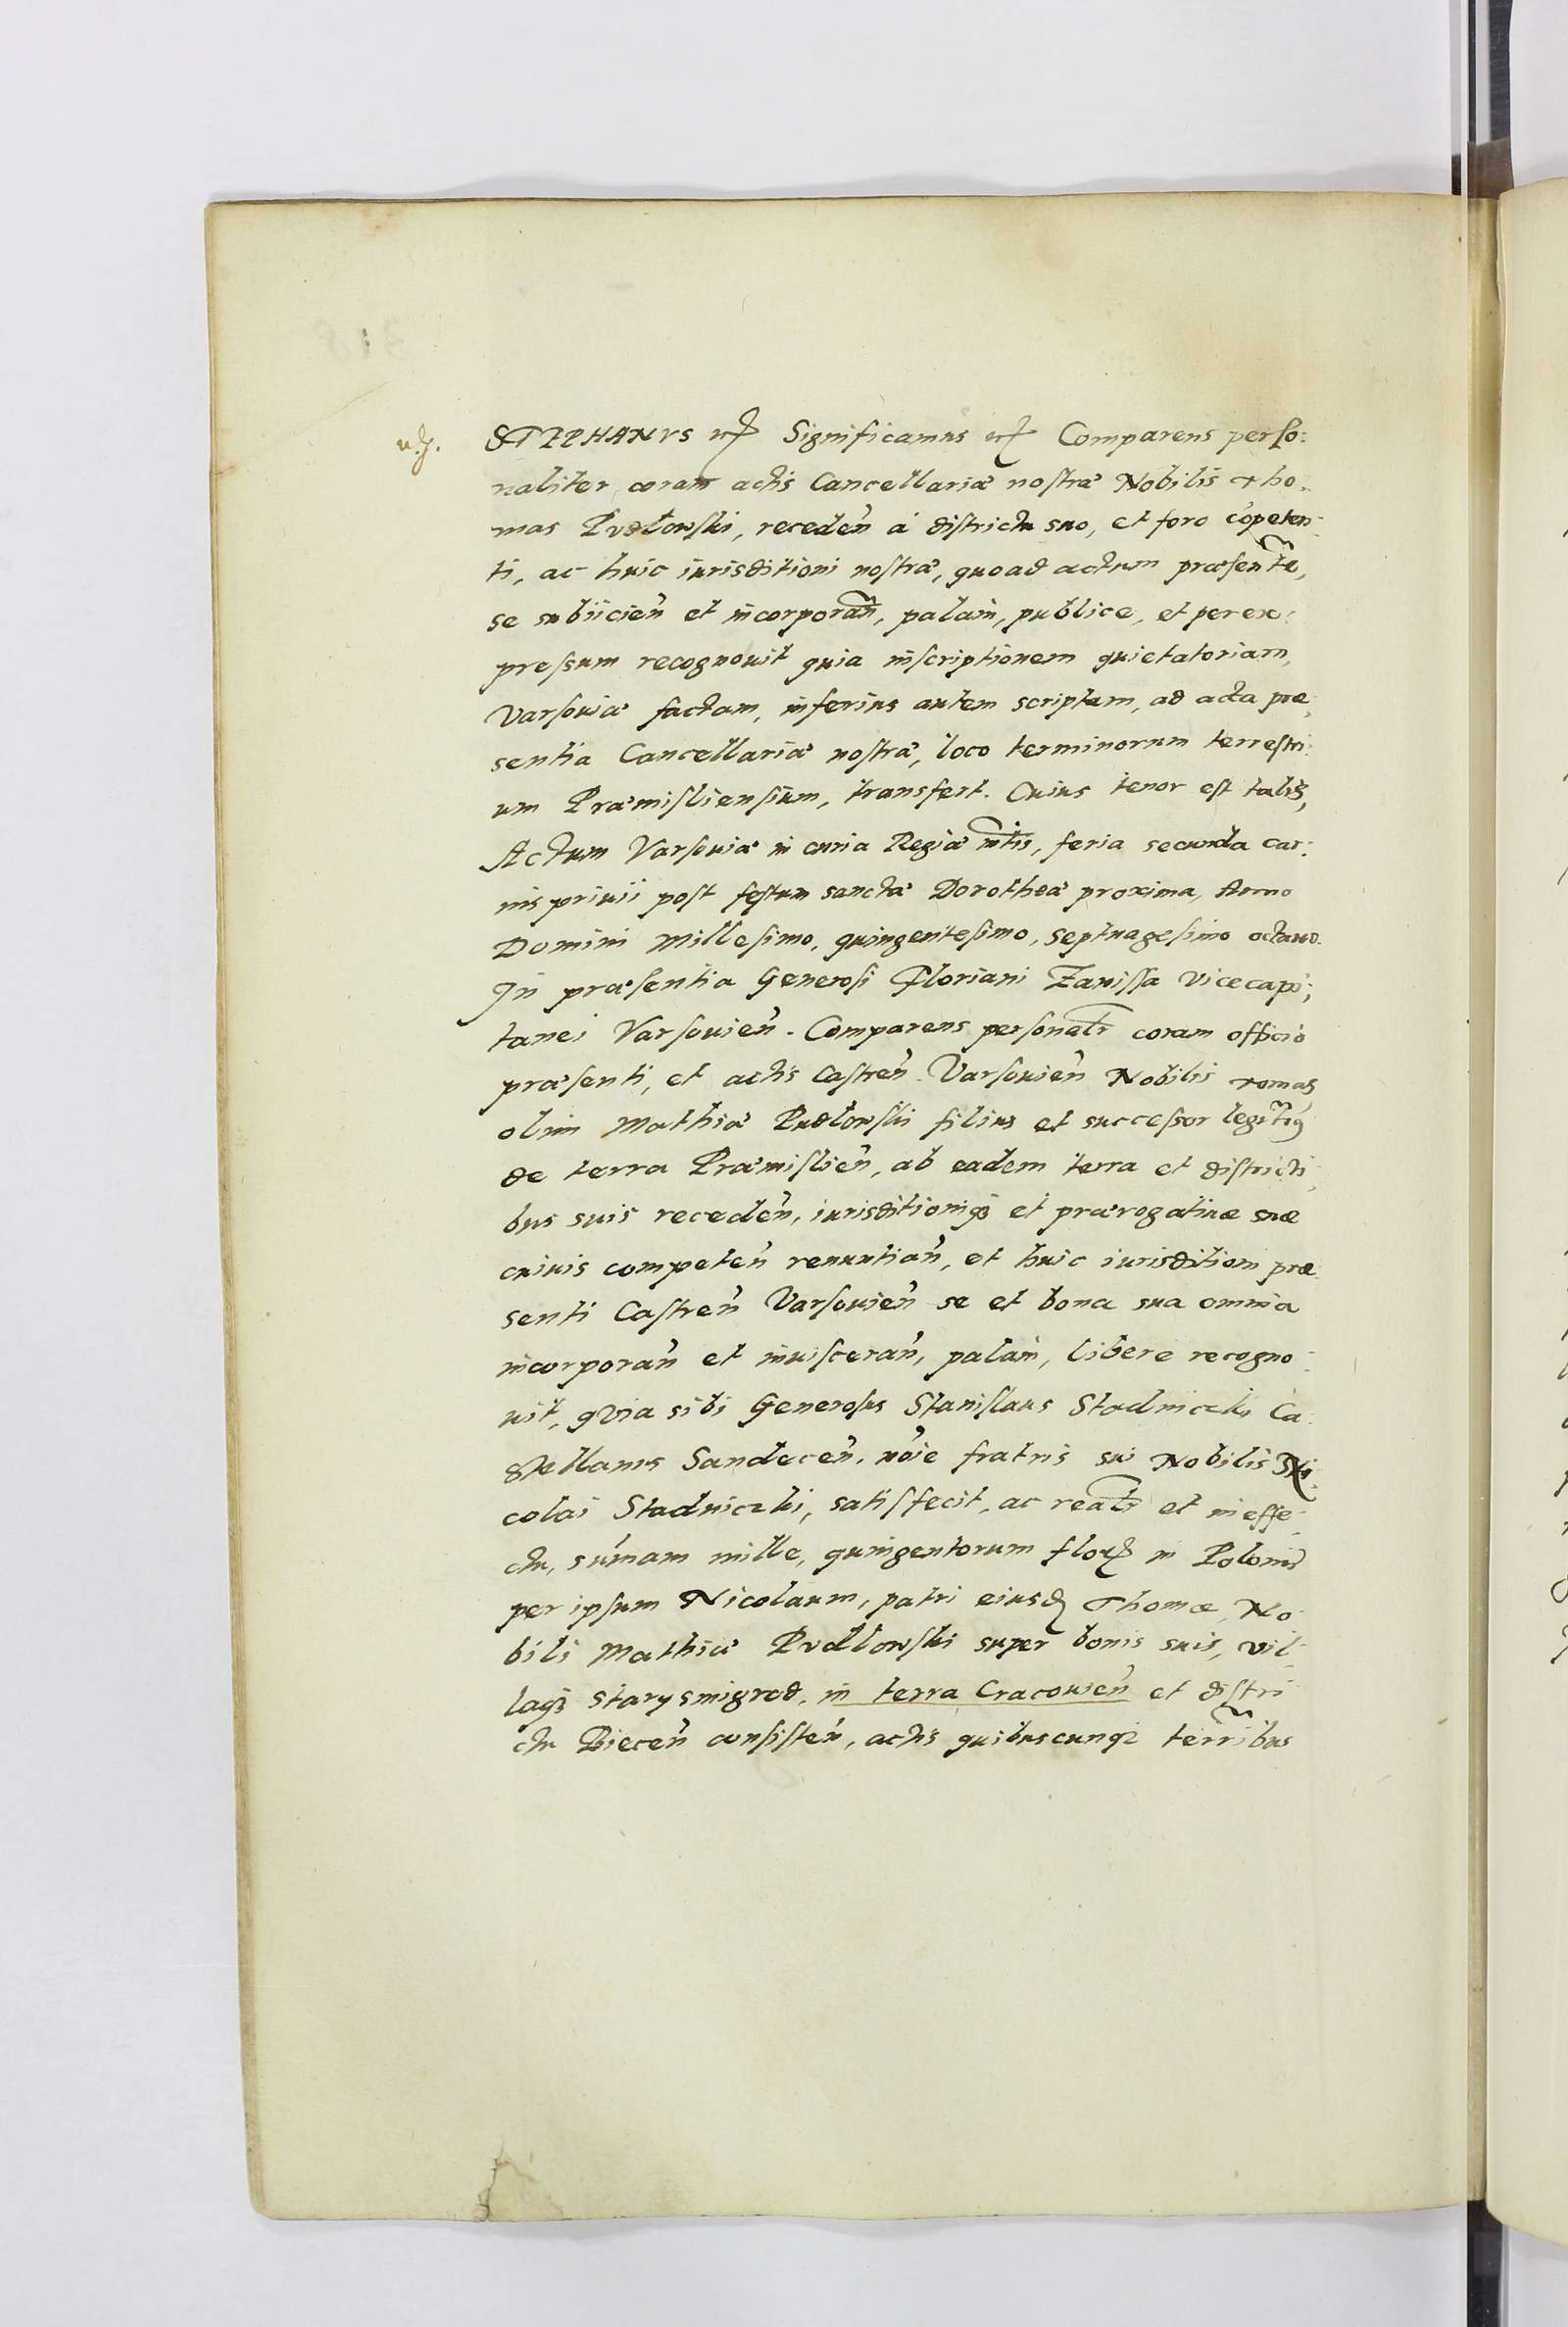 STEPHANVS etc Significamus etc Comparens perso:
naliter coram actis Cancellariæ nostræ Nobilis Tho:
mas Pudłowski, receden̄ á districtu suo, et foro cōpeten:
ti, ac huic iurisditioni nostræ, quoad actum præsentē,
se subiicien̄ et incorporan̄, palam, publice, et per ex:
pressum recognouit quia inscriptionem quietatoriam,
Varsouiæ factam, inferius autem scriptam, ad acta præ:
sentia Cancellariæ nostræ, loco terminorum terrestri:
um Præmisliensium, transfert. Cuius tenor est talis,
Actum Varsouiæ in curia Regiæ mtis, feria secunda car:
nispriuii post festum sanctæ Dorotheæ proxima, Anno
Domini Millesimo, quingentesimo, septuagesimo octauo.
In præsentia Generosi Floriani Zauissa Vicecapi:
tanei Varsouien̄. Comparens personalr coram officio
præsenti, et actis Castren̄ Varsouien̄ Nobilis Tomas
olim Mathiæ Pudłowski filius et successor legitimus
de terra Præmislien̄, ab eadem terra et districti:
bus suis receden̄, iurisditioniq3 et prærogatiuæ suæ
cuiuis competen̄ renuntian̄, et huic iurisditioni præ:
senti Castren̄ Varsouien̄ se et bona sua omnia
incorporan̄ et inuisceran̄, palam, libere recogno:
uit, quia sibi Generosus Stanislaus Stadniczki Ca:
stellanus Sandecen̄, noīe fratris sui Nobilis Ni:
colai Stadniczki, satisfecit, ac realr et in effe:
ctu, sūmam mille, quingentorum flor in Polonis
per ipsum Nicolaum, patri eiusd Thomæ, No:
bili Mathiæ Pudłowski super bonis suis, vil:
laq3 Starysmigrod, in terra Cracouien̄ et distri:
ctu Biecen̄ consisten̄, actis quibuscunq3 terribus